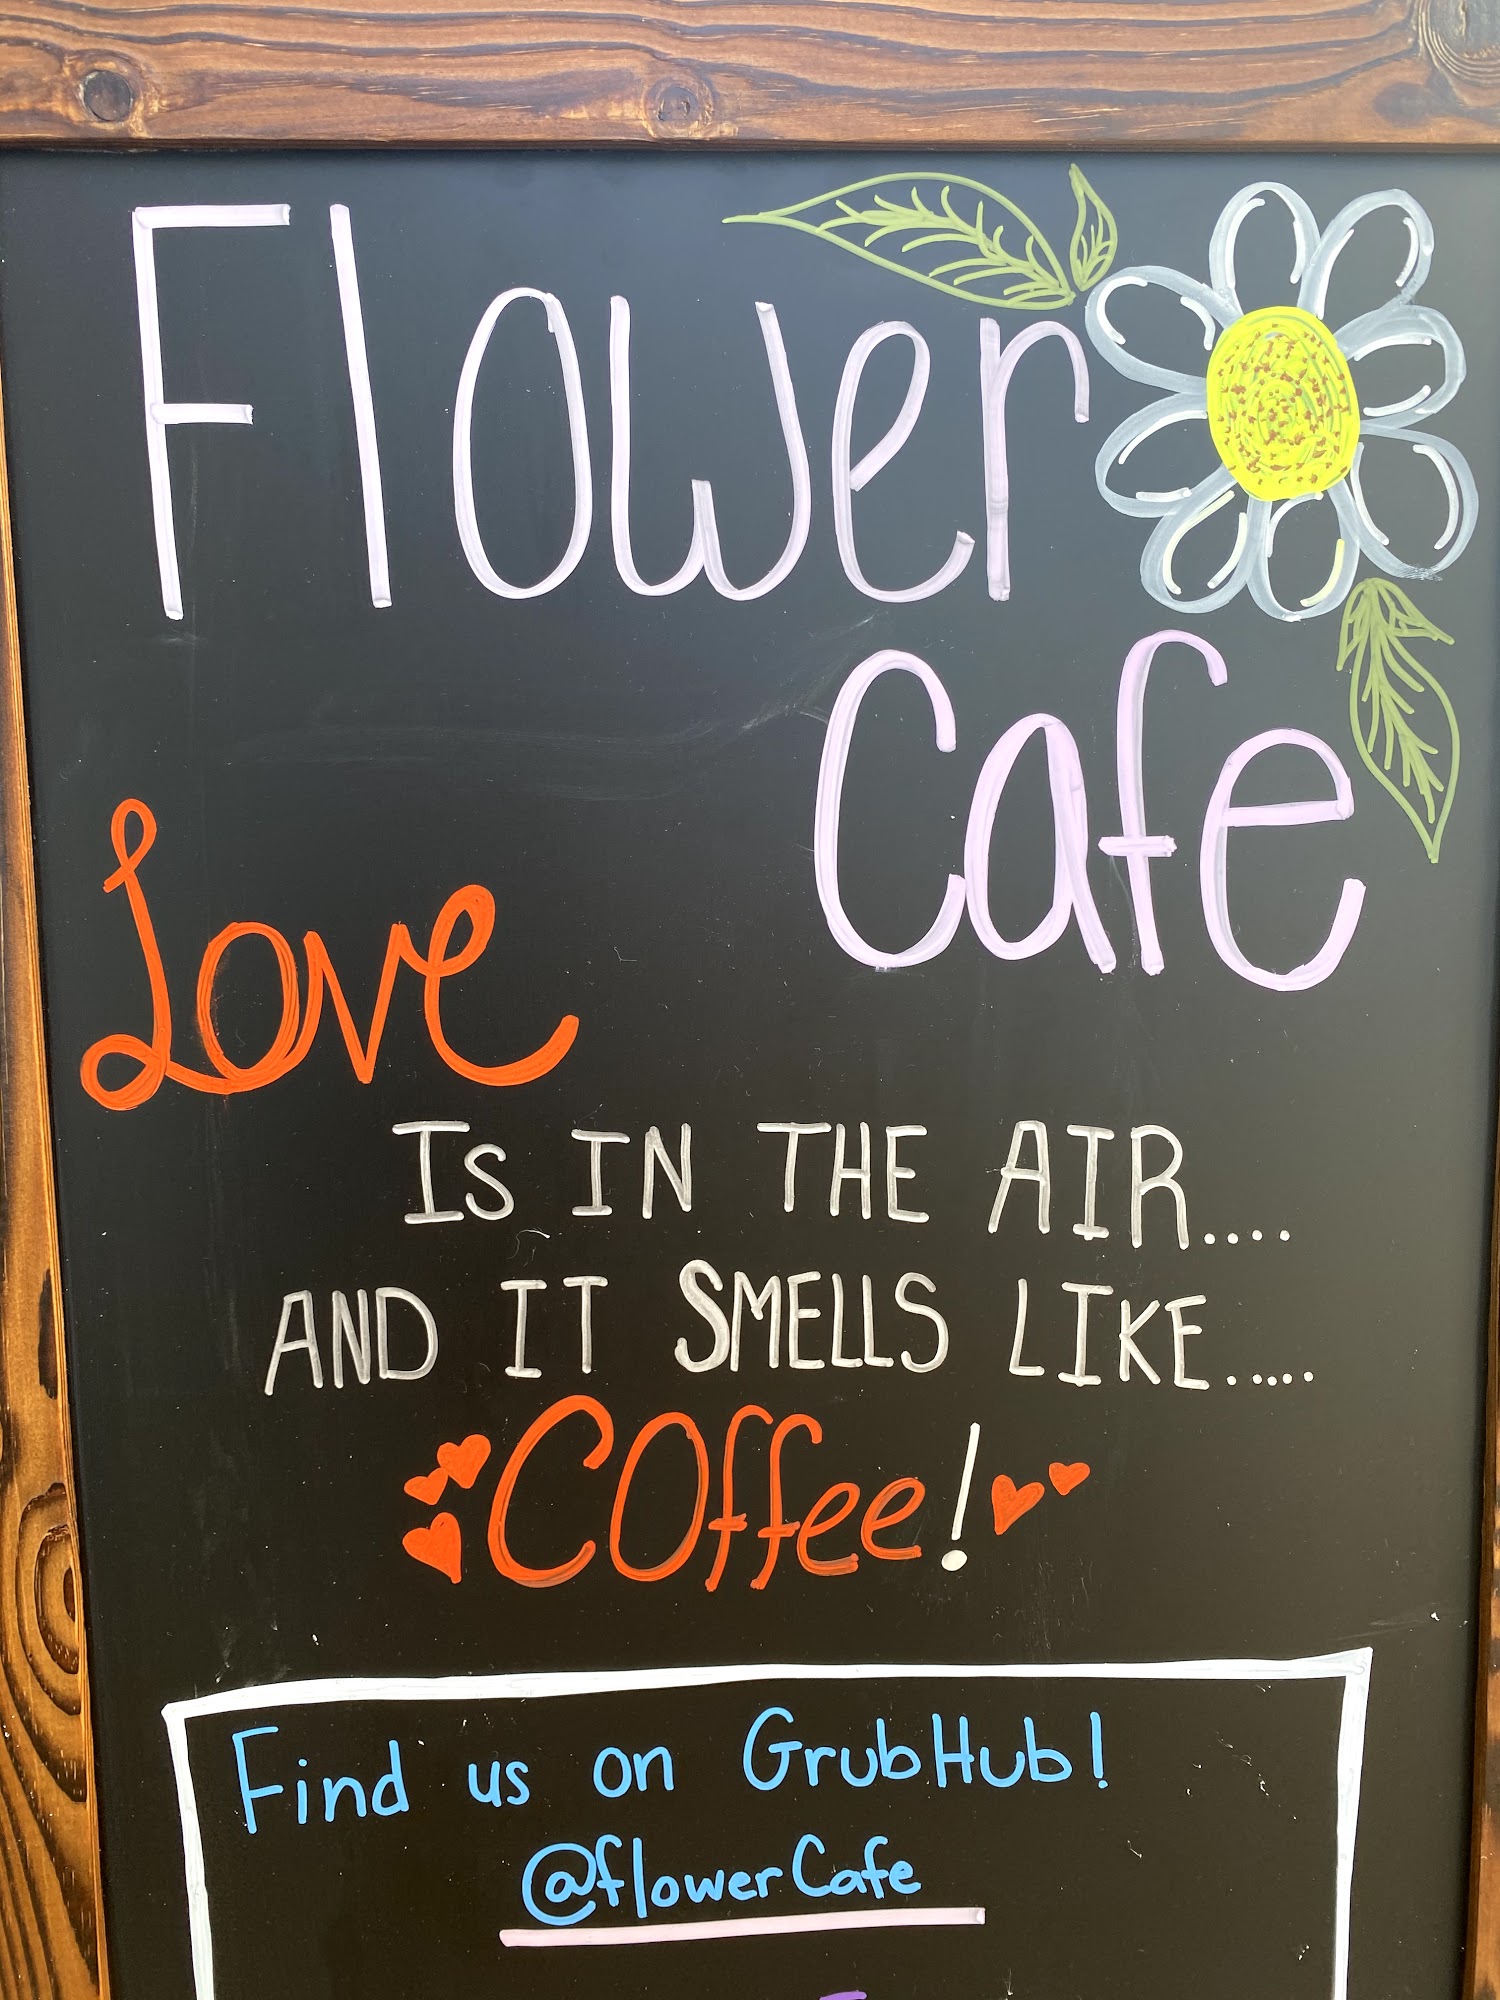 Flower
Cafe
Love
Is IN THE AIR....
AND IT SMELLS LIKE.....
COffee!
Find us on GrubHub!
@flowerCafe